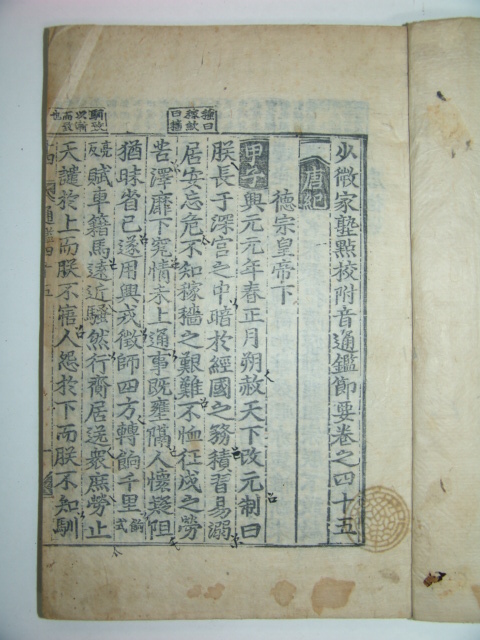 少微家塾點校附音通鑑節要卷之四十五
唐紀
德宗皇帝下
甲子興元元年春正月朔赦天下改元制曰
朕長于深宮之中暗於經國之務積習易溺
種曰稼斂曰穡
居安忘危不知稼穡之艱難不恤征戍之勞
苦澤靡下究情未上通事既壅隔人懷疑阻
猶昧省己遂用興戎徵師四方轉餉千里餉式
亮反賦車籍馬遠近騷然行齎居送衆庶勞止
天譴於上而朕不寤人怨於下而朕不知馴